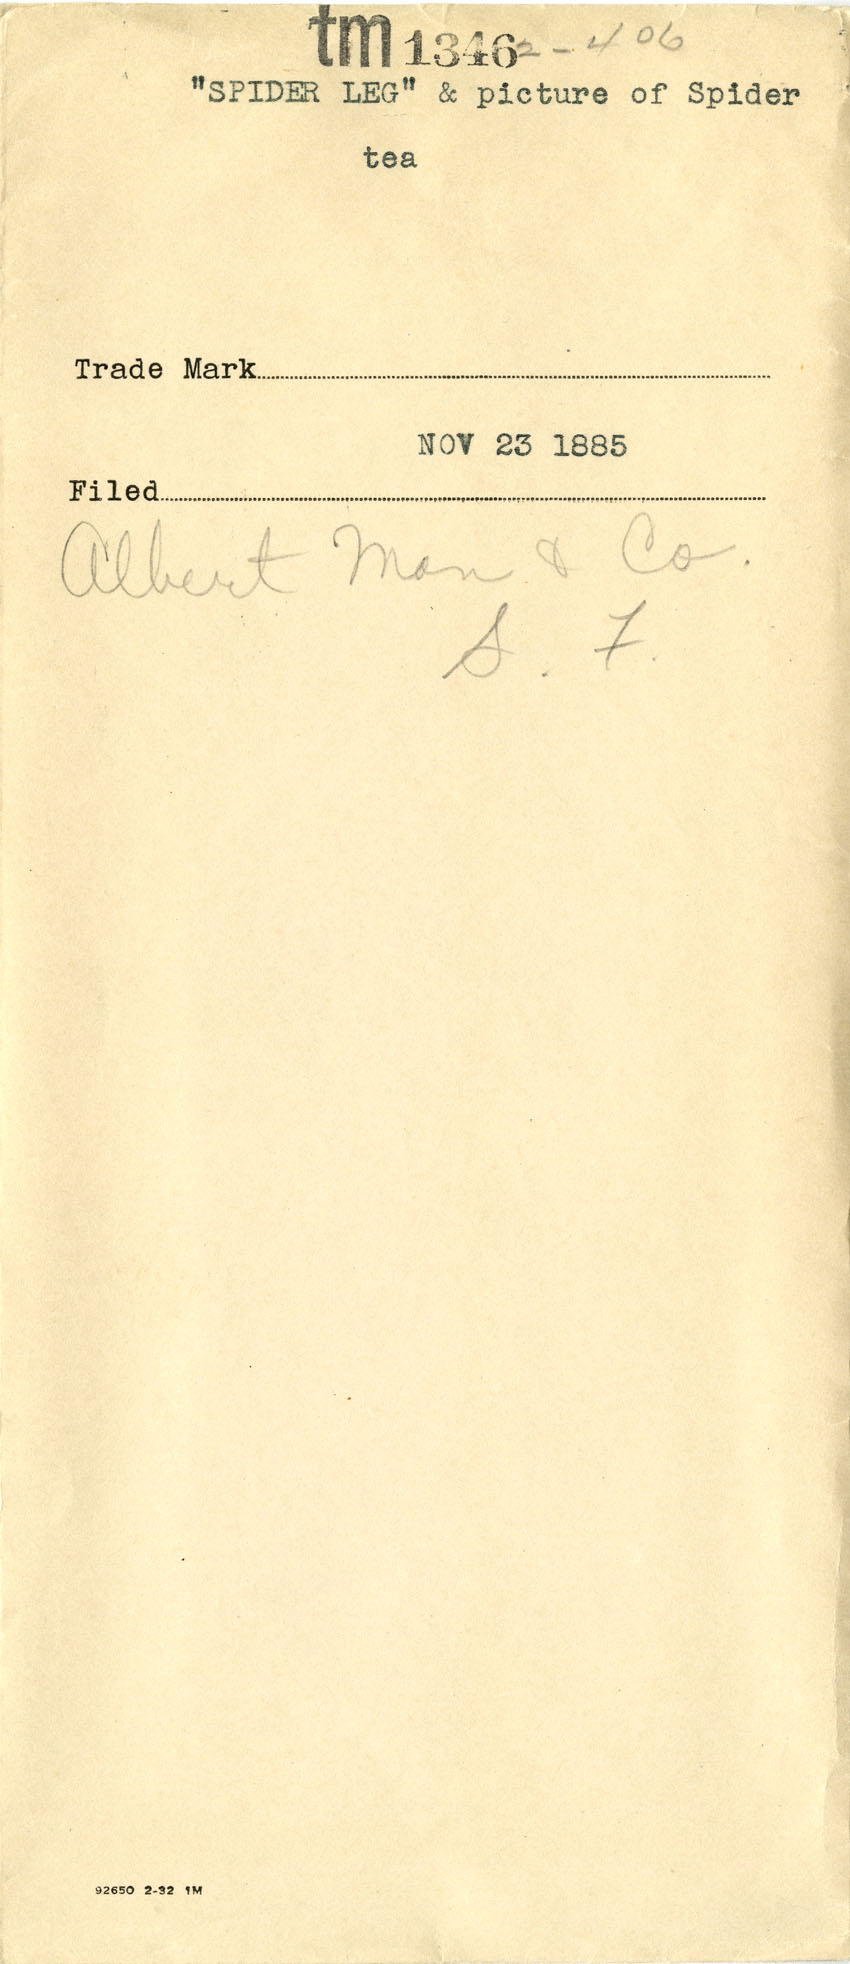 tm 1346 2-406
"SPIDER LEG" & picture of Spider
tea
Trade Mark
NOV 23 1885
Filed
Albert Man & Co.
S. F.
92650 2-32 1M